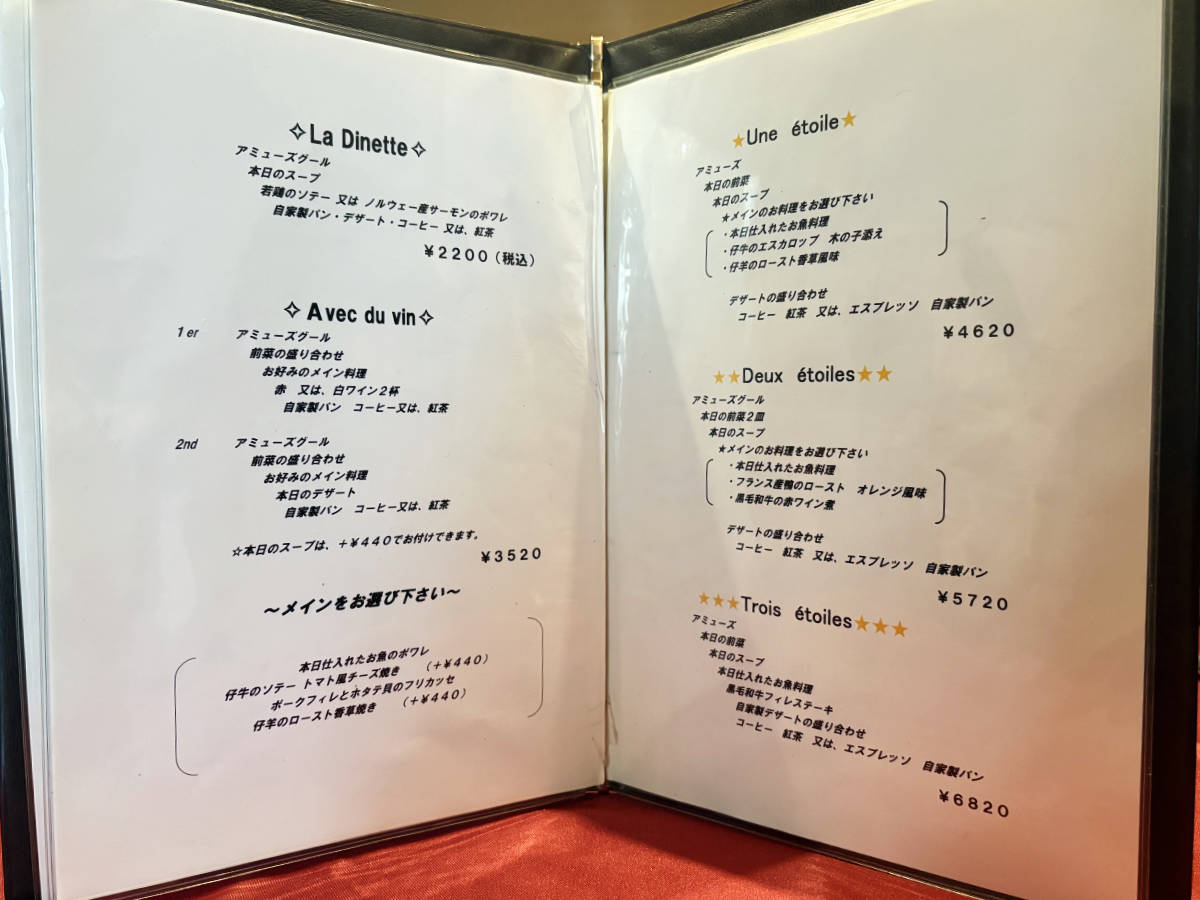 ✧La Dinette✧
アミューズグール
本日のスープ
若鶏のソテー 又は ノルウェー産サーモンのポワレ
自家製パン・デザート・コーヒー 又は、紅茶
￥2200（税込）
✧Avec du vin✧
1er アミューズグール
前菜の盛り合わせ
お好みのメイン料理
赤　又は、白ワイン２杯
自家製パン　コーヒー又は、紅茶
2nd アミューズグール
前菜の盛り合わせ
お好みのメイン料理
本日のデザート
自家製パン　コーヒー又は、紅茶
☆本日のスープは、＋￥４４０でお付けできます。
￥3520
～メインをお選び下さい～
本日仕入れたお魚のポワレ
仔牛のソテー トマト風チーズ焼き　（＋￥４４０）
ポークフィレとホタテ貝のフリカッセ
仔羊のロースト香草焼き　（＋￥４４０）
★Une étoile★
アミューズ
本日の前菜
本日のスープ
★メインのお料理をお選び下さい
・本日仕入れたお魚料理
・仔牛のエスカロップ　木の子添え
・仔羊のロースト香草風味
デザートの盛り合わせ
コーヒー　紅茶　又は、エスプレッソ　自家製パン
￥4620
★★Deux étoiles★★
アミューズグール
本日の前菜２皿
本日のスープ
★メインのお料理をお選び下さい
・本日仕入れたお魚料理
・フランス産鴨のロースト　オレンジ風味
・黒毛和牛の赤ワイン煮
デザートの盛り合わせ
コーヒー　紅茶　又は、エスプレッソ　自家製パン
￥5720
★★★Trois étoiles★★★
アミューズ
本日の前菜
本日のスープ
本日仕入れたお魚料理
黒毛和牛フィレステーキ
自家製デザートの盛り合わせ
コーヒー　紅茶　又は、エスプレッソ　自家製パン
￥6820